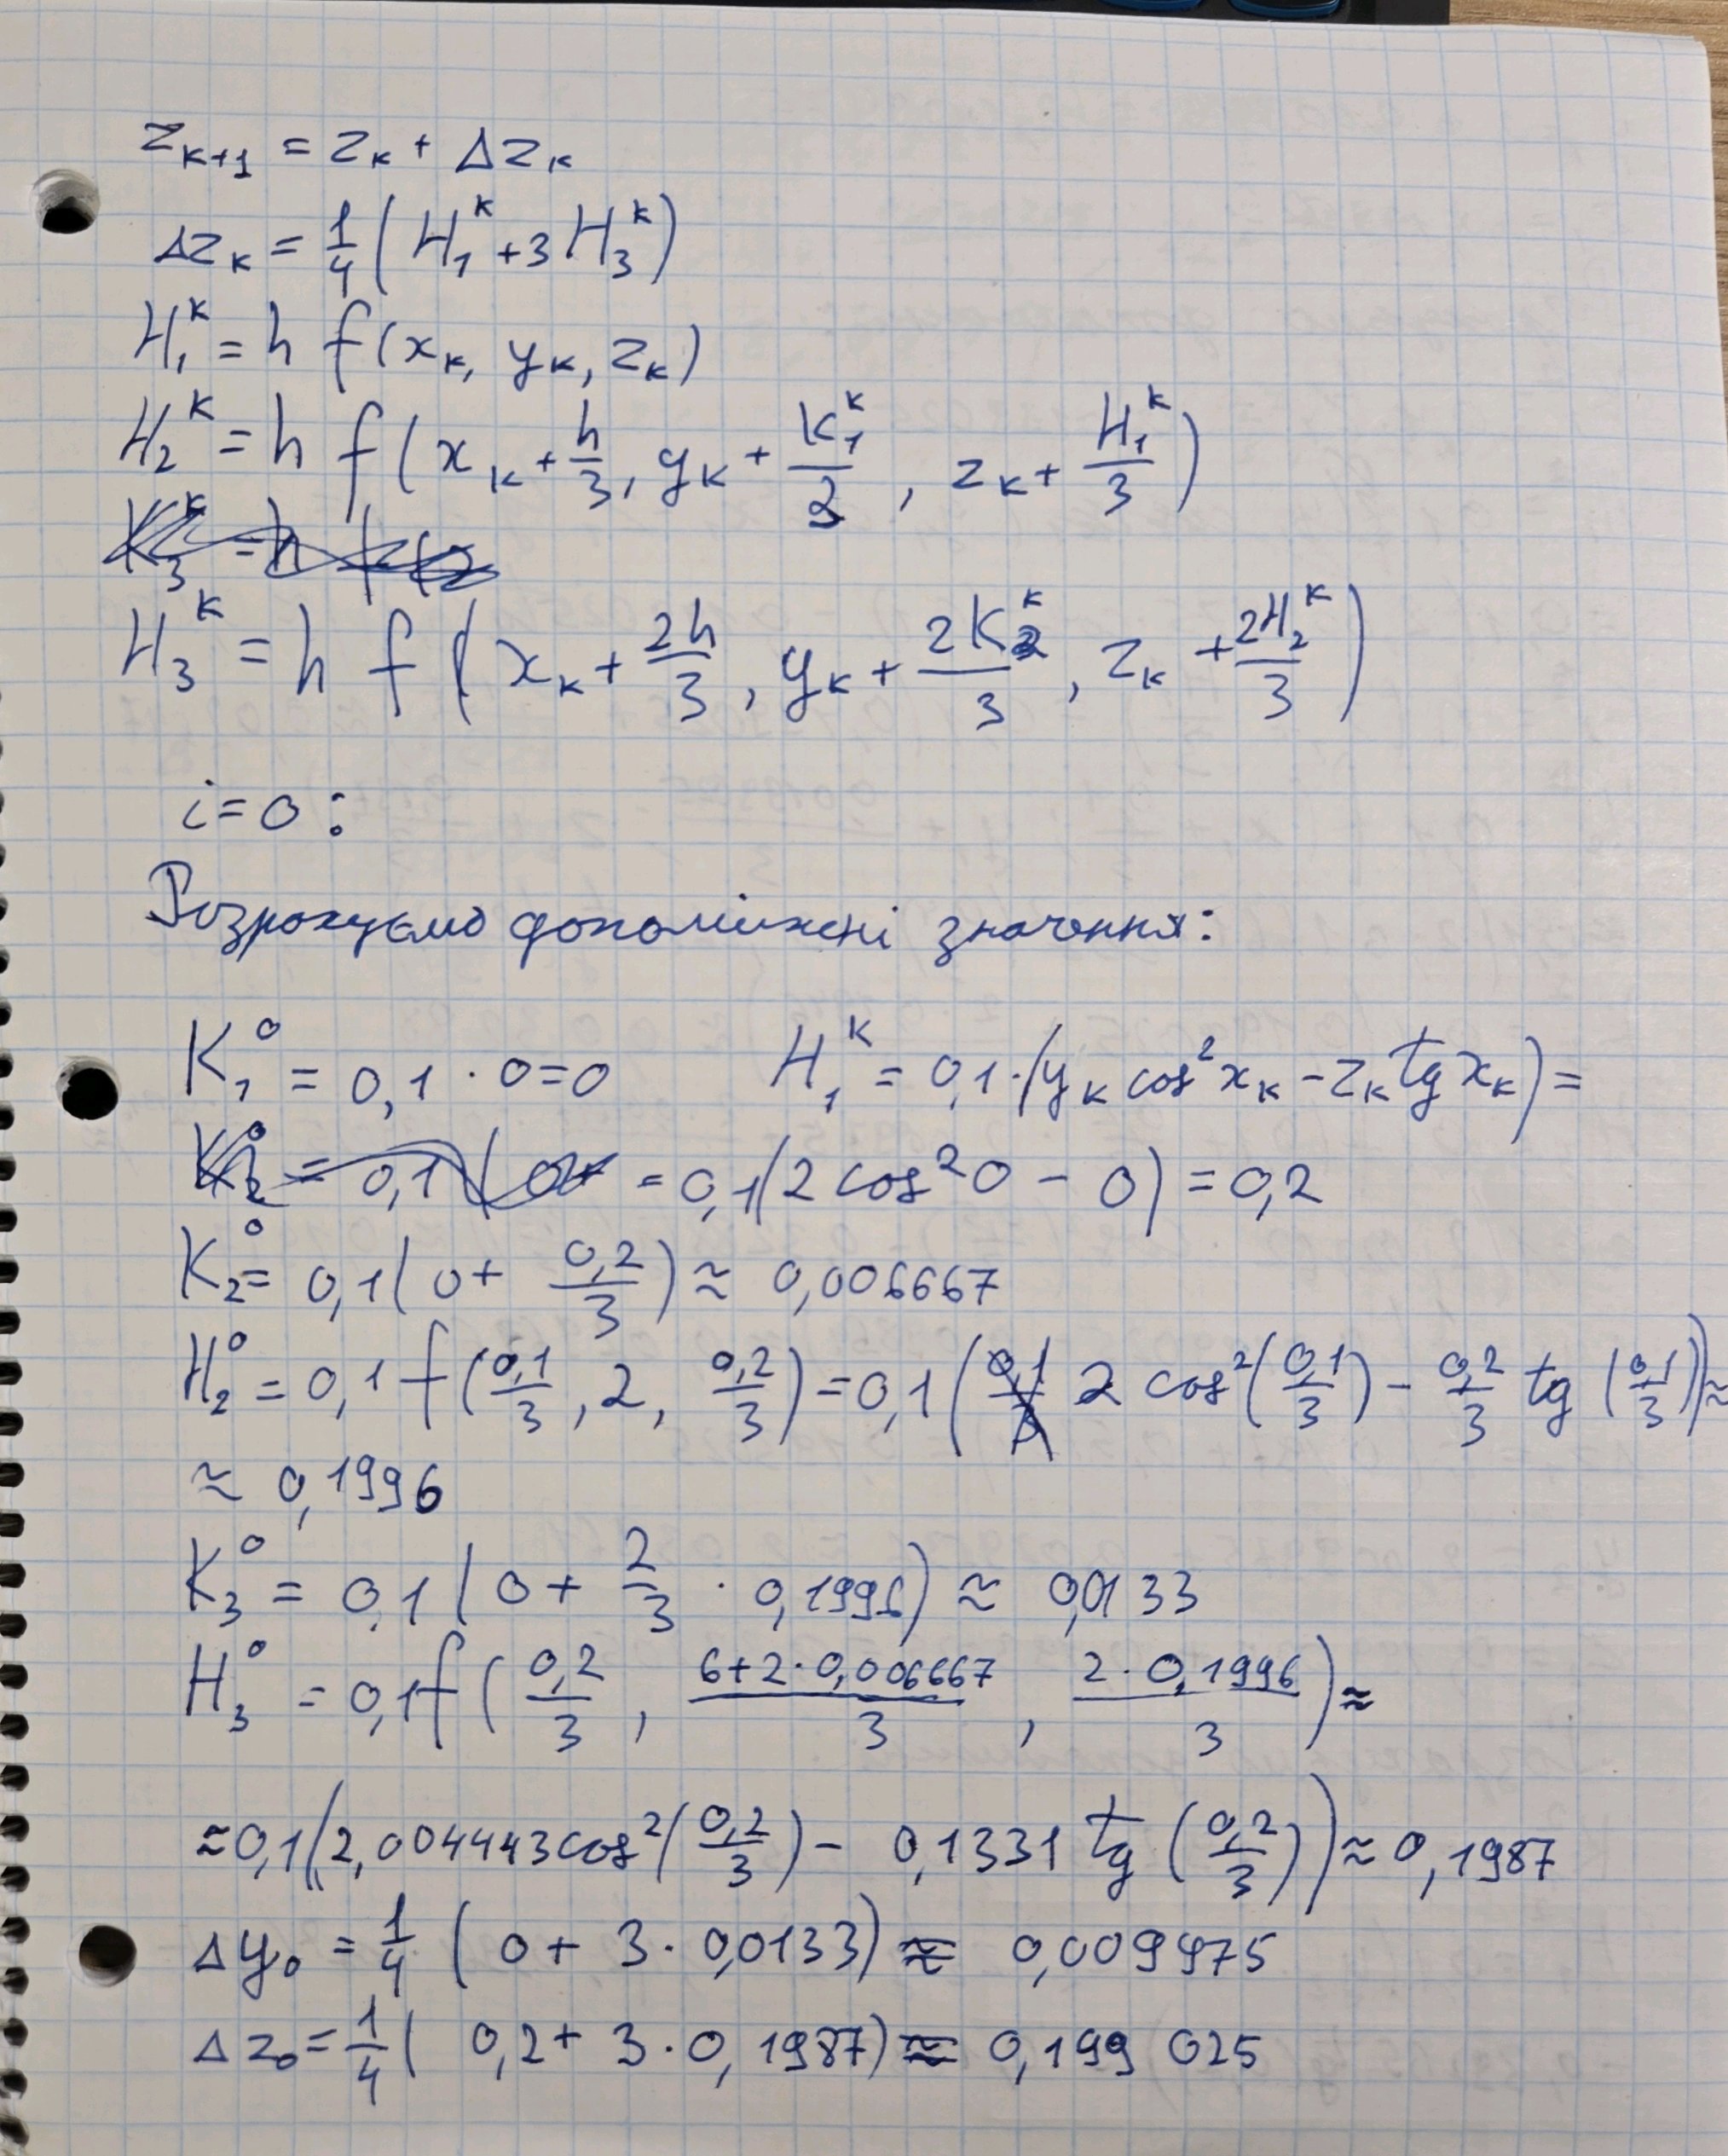 z_{k+1} = z_k + Δz_k
Δz_k = 1/4 (H_1^k + 3H_3^k)
H_1^k = h f(x_k, y_k, z_k)
H_2^k = h f(x_k + h/3, y_k + K_1^k/3, z_k + H_1^k/3)
K_3^k = h f(x
H_3^k = h f(x_k + 2h/3, y_k + 2K_2^k/3, z_k + 2H_2^k/3)
i=0:
Розрахуємо допоміжні значення:
K_1^0 = 0,1 · 0=0 H_1^k = 0,1·(y_k cos² x_k - z_k tg x_k) =
K_2^0 = 0,1(0+ = 0,1(2 cos² 0 - 0) = 0,2
K_2^0 = 0,1(0+ 0,2/3) ≈ 0,006667
H_2^0 = 0,1 f(0,1/3, 2, 0,2/3) = 0,1(0,1/3 2 cos²(0,1/3) - 0,2/3 tg (0,1/3)) ≈
≈ 0,1996
K_3^0 = 0,1(0+ 2/3 · 0,1996) ≈ 0,0133
H_3^0 = 0,1f(0,2/3, 6+2·0,006667/3, 2·0,1996/3) ≈
≈0,1(2,004443cos²(0,2/3) - 0,1331 tg (0,2/3)) ≈ 0,1987
Δy_0 = 1/4 (0+ 3·0,0133) ≈ 0,009975
Δz_0 = 1/4 (0,2+ 3·0,1987) ≈ 0,199 025